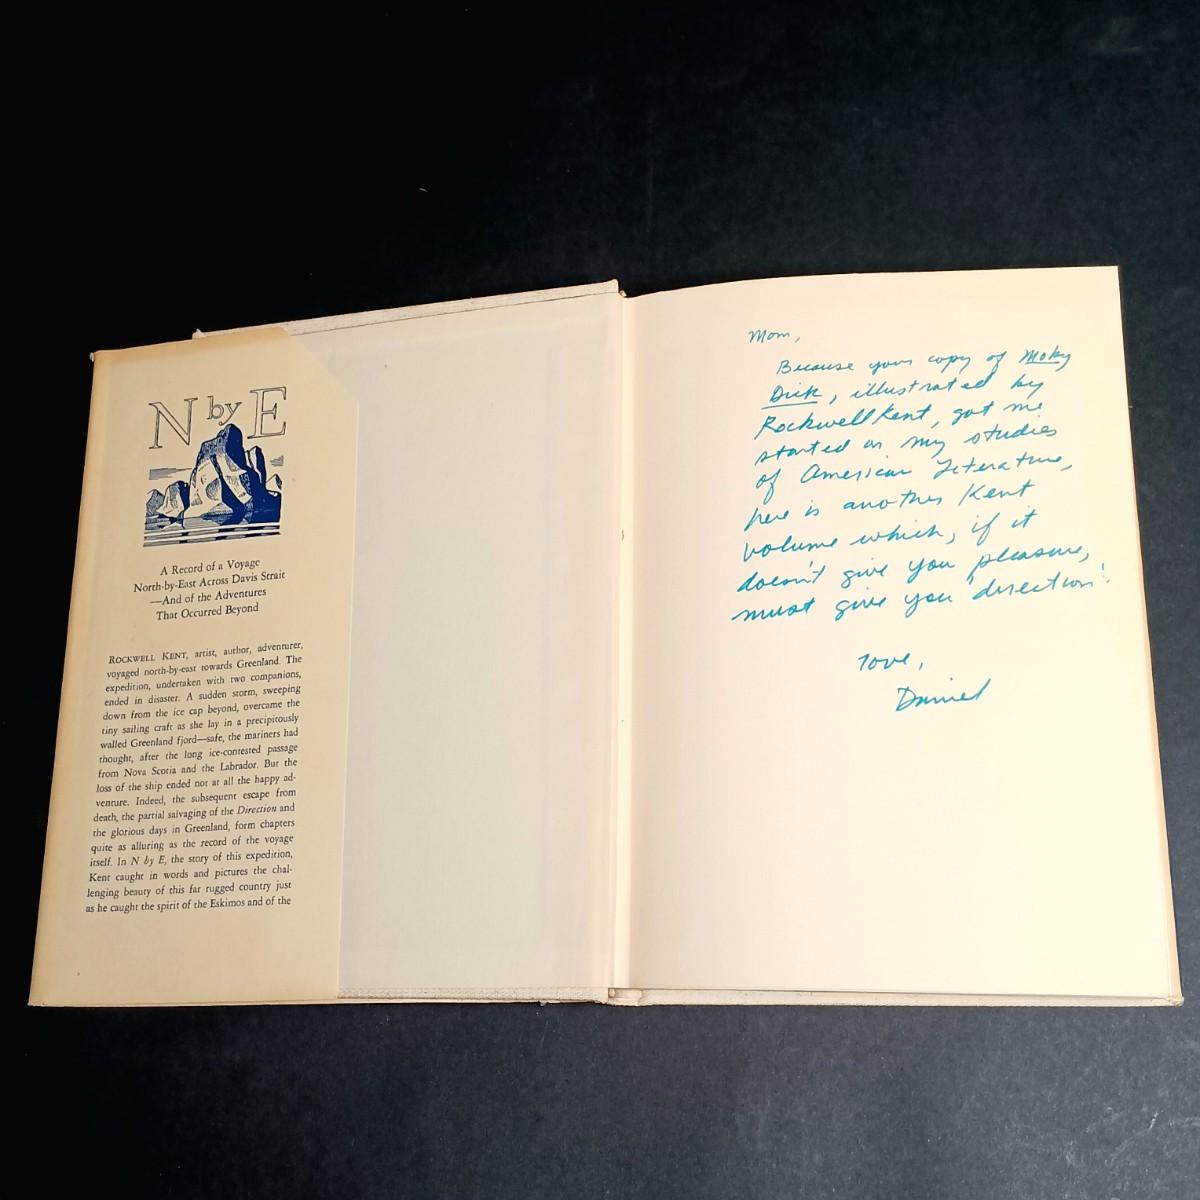 N by E
A Record of a Voyage
North-by-East Across Davis Strait
—And of the Adventures
That Occurred Beyond
ROCKWELL KENT, artist, author, adventurer,
voyaged north-by-east towards Greenland. The
expedition, undertaken with two companions,
ended in disaster. A sudden storm, sweeping
down from the ice cap beyond, overcame the
tiny sailing craft as she lay in a precipitously
walled Greenland fjord—safe, the mariners had
thought, after the long ice-contested passage
from Nova Scotia and the Labrador. But the
loss of the ship ended not at all the happy ad-
venture. Indeed, the subsequent escape from
death, the partial salvaging of the Direction and
the glorious days in Greenland, form chapters
quite as alluring as the record of the voyage
itself. In N by E, the story of this expedition,
Kent caught in words and pictures the chal-
lenging beauty of this far rugged country just
as he caught the spirit of the Eskimos and of the
Mom,
Because your copy of Moby
Dick, illustrated by
Rockwell Kent, got me
started on my studies
of American Literature,
here is another Kent
volume which, if it
doesn't give you pleasure,
must give you 'direction'.
Love,
Daniel